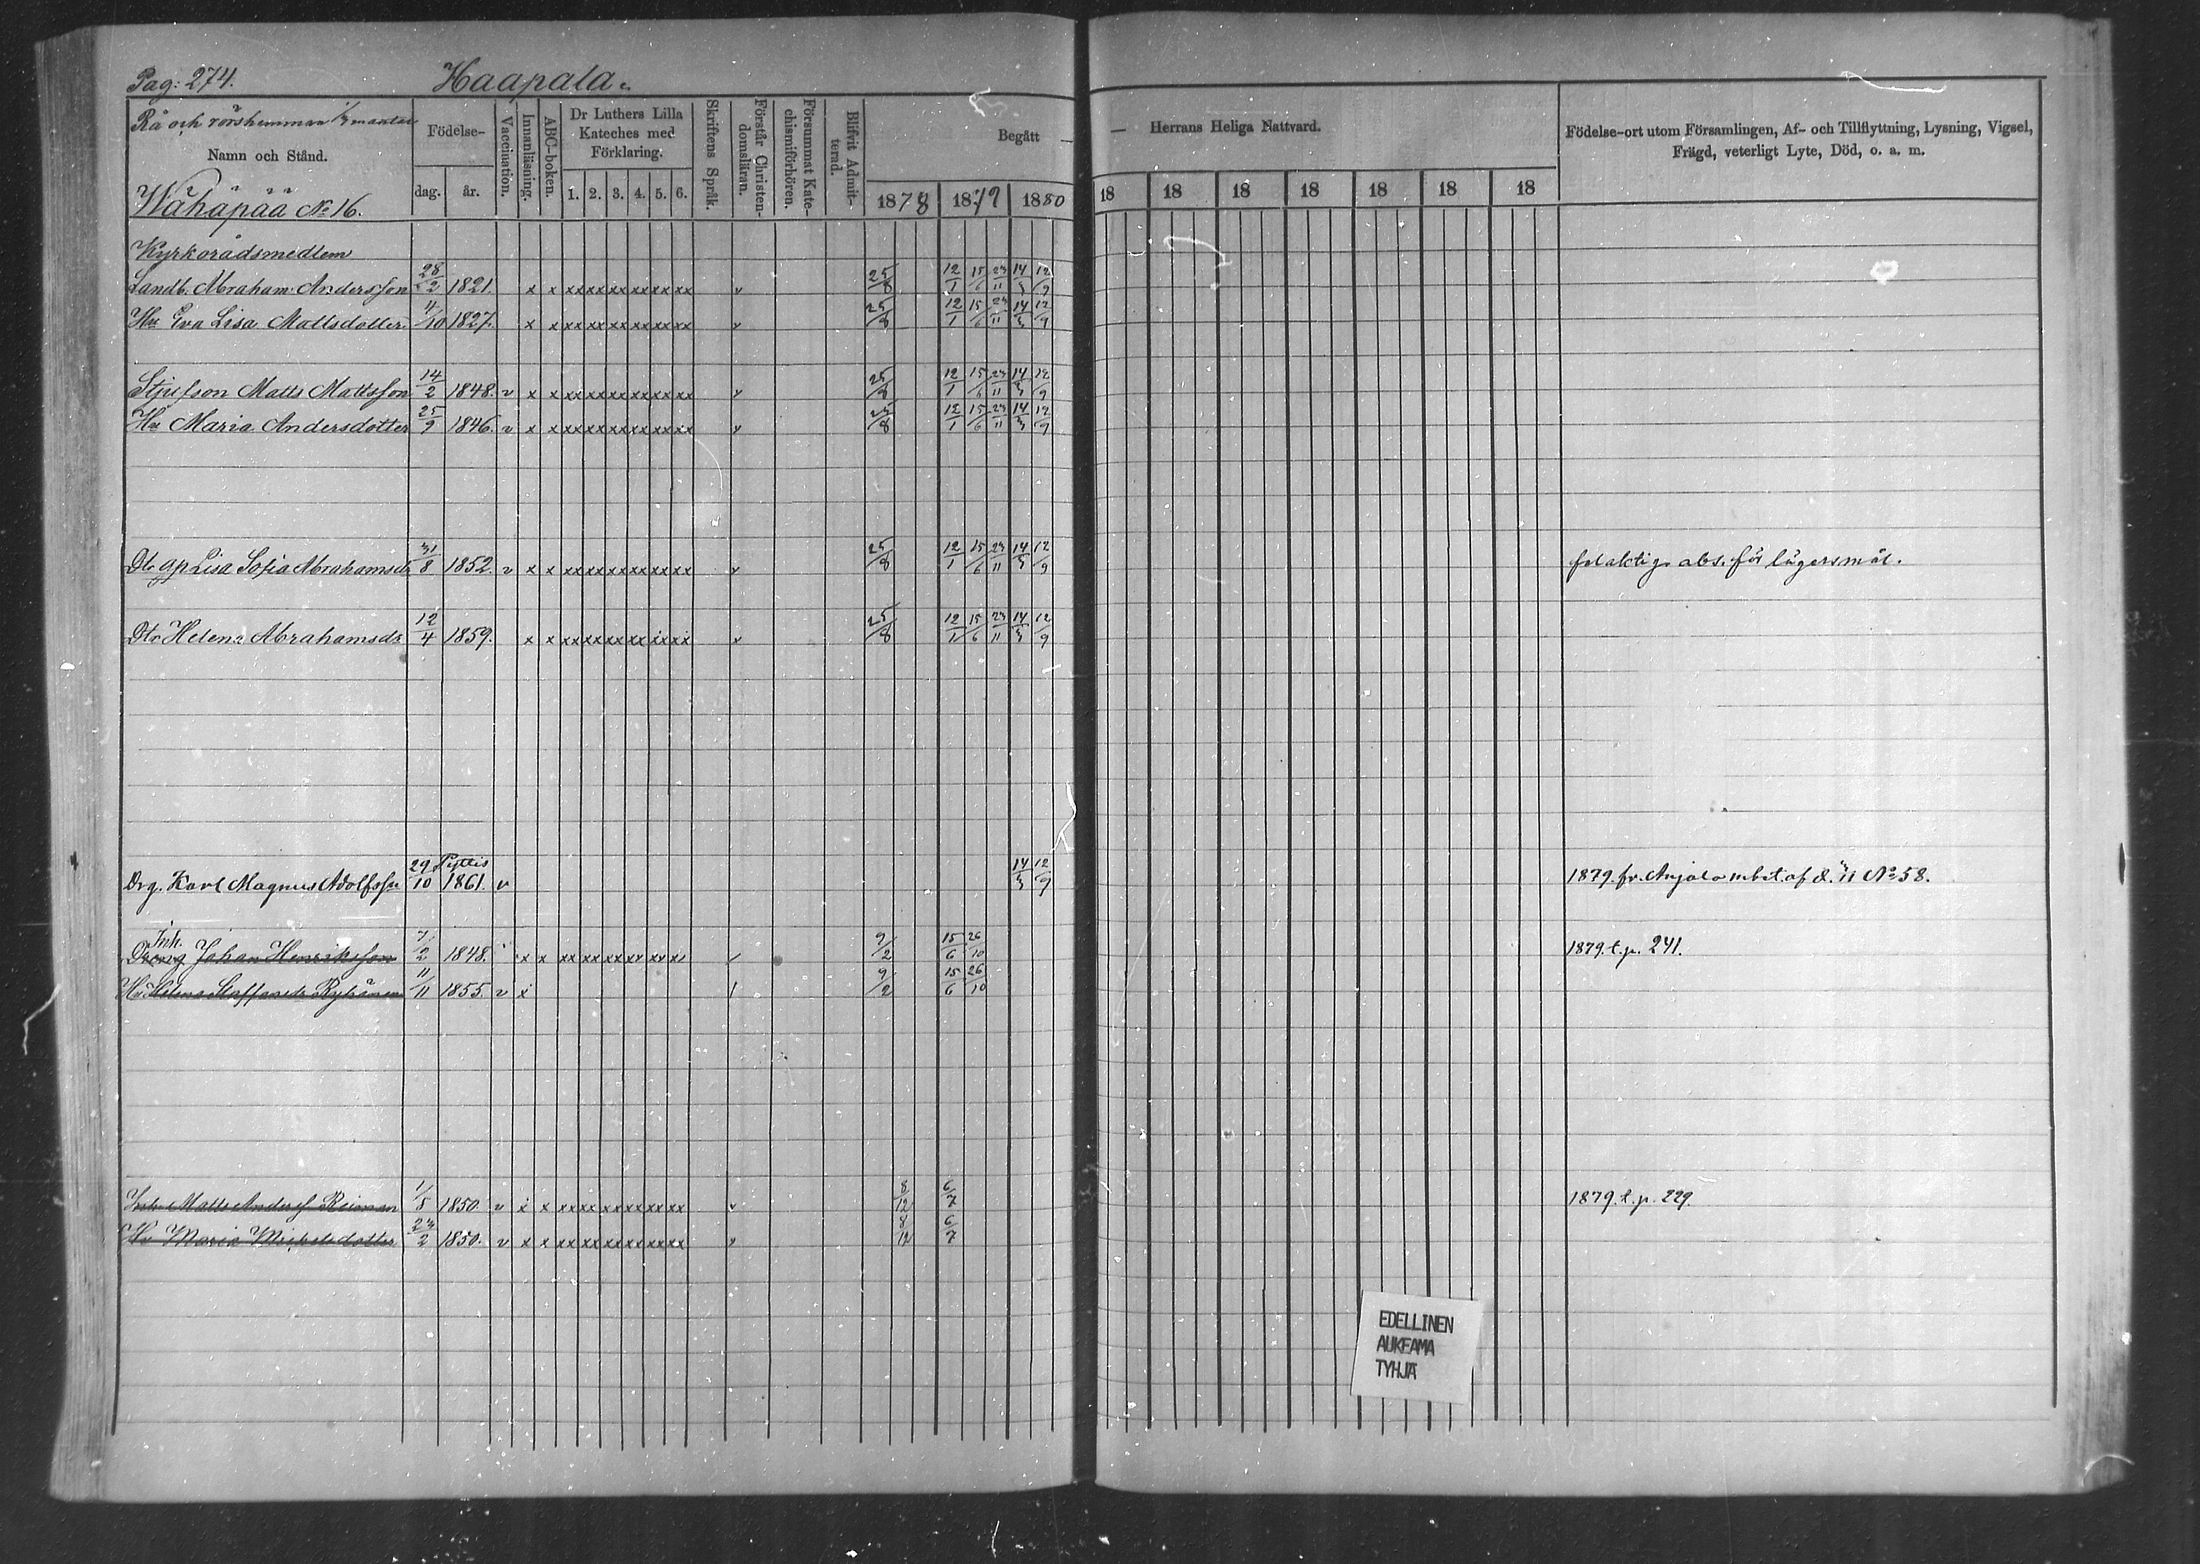 Pag: 274. Haapala.
Rå och rörshemman
Namn och Stånd.
Födelse-
dag. år.
Vaccination.
Innanläsning.
ABC-boken.
Dr Luthers Lilla
Kateches med
Förklaring.
1. 2. 3. 4. 5. 6.
Skriftens Språk.
Förstår Christen-
domsläran.
Försummat Kate-
chismiförhören.
Blifvit Admit-
terad.
Begått — — Herrans Heliga Nattvard.
1878 1879 1880 18 18 18 18 18 18 18
Födelse-ort utom Församlingen, Af- och Tillflyttning, Lysning, Vigsel,
Frägd, veterligt Lyte, Död, o. a. m.
Wähäpää No 16.
Kyrkorådsmedlem
Landb. Abraham Andersson 28/2 1821. x x xx xx xx xx xx xx v 25/8 12/1 15/6 23/11 14/3 12/9
Hu Eva Lisa Mattsdotter 11/10 1827. x x xx xx xx xx xx xx v 25/8 12/1 15/6 23/11 14/3 12/9
Stjufson Matts Mattsson 14/2 1848. v x x xx xx xx xx xx xx v 25/8 12/1 15/6 23/11 14/3 12/9
Hu Maria Andersdotter 25/9 1846. v x x xx xx xx xx xx xx v 25/8 12/1 15/6 23/11 14/3 12/9
Dtr Lisa Sofia Abrahamsdr 31/8 1852. v x x xx xx xx xx xx xx v 25/8 12/1 15/6 23/11 14/3 12/9 felaktig. abs. för lägersmål.
Dtr Helena Abrahamsdr 12/4 1859. x x xx xx xx xx xx xx v 25/8 12/1 15/6 23/11 14/3 12/9
Pyttis
Drg. Karl Magnus Adolfsson 29/10 1861. v 14/3 12/9 1879. fr. Anjala No 58.
Inh.
Dreng Johan Henriksson 7/2 1848. x x xx xx xx xx xx xx 9/2 15/6 26/10 1879. t. p. 241.
Hu Helena Staffansdr Ryhänen 11/11 1855. v x 9/2 15/6 26/10
Inh. Matts Andersson Reiman 1/5 1850. v x x xx xx xx xx xx xx v 8/12 6/7 1879. t. p. 229.
Hu Maria Mickelsdotter 23/2 1850. v x x xx xx xx xx xx xx v 8/12 6/7
EDELLINEN
AUKEAMA
TYHJÄ